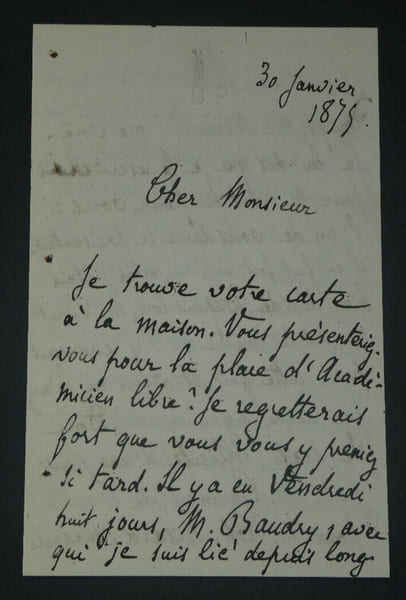 30 Janvier
1875.
Cher Monsieur
Je trouve votre carte
à la maison. Vous présenteriez-
vous pour la place d'Acadé-
micien libre? Je regretterais
fort que vous vous y preniez
si tard. Il y a eu Vendredi
huit jours, M. Baudry, avec
qui je suis lié depuis long-